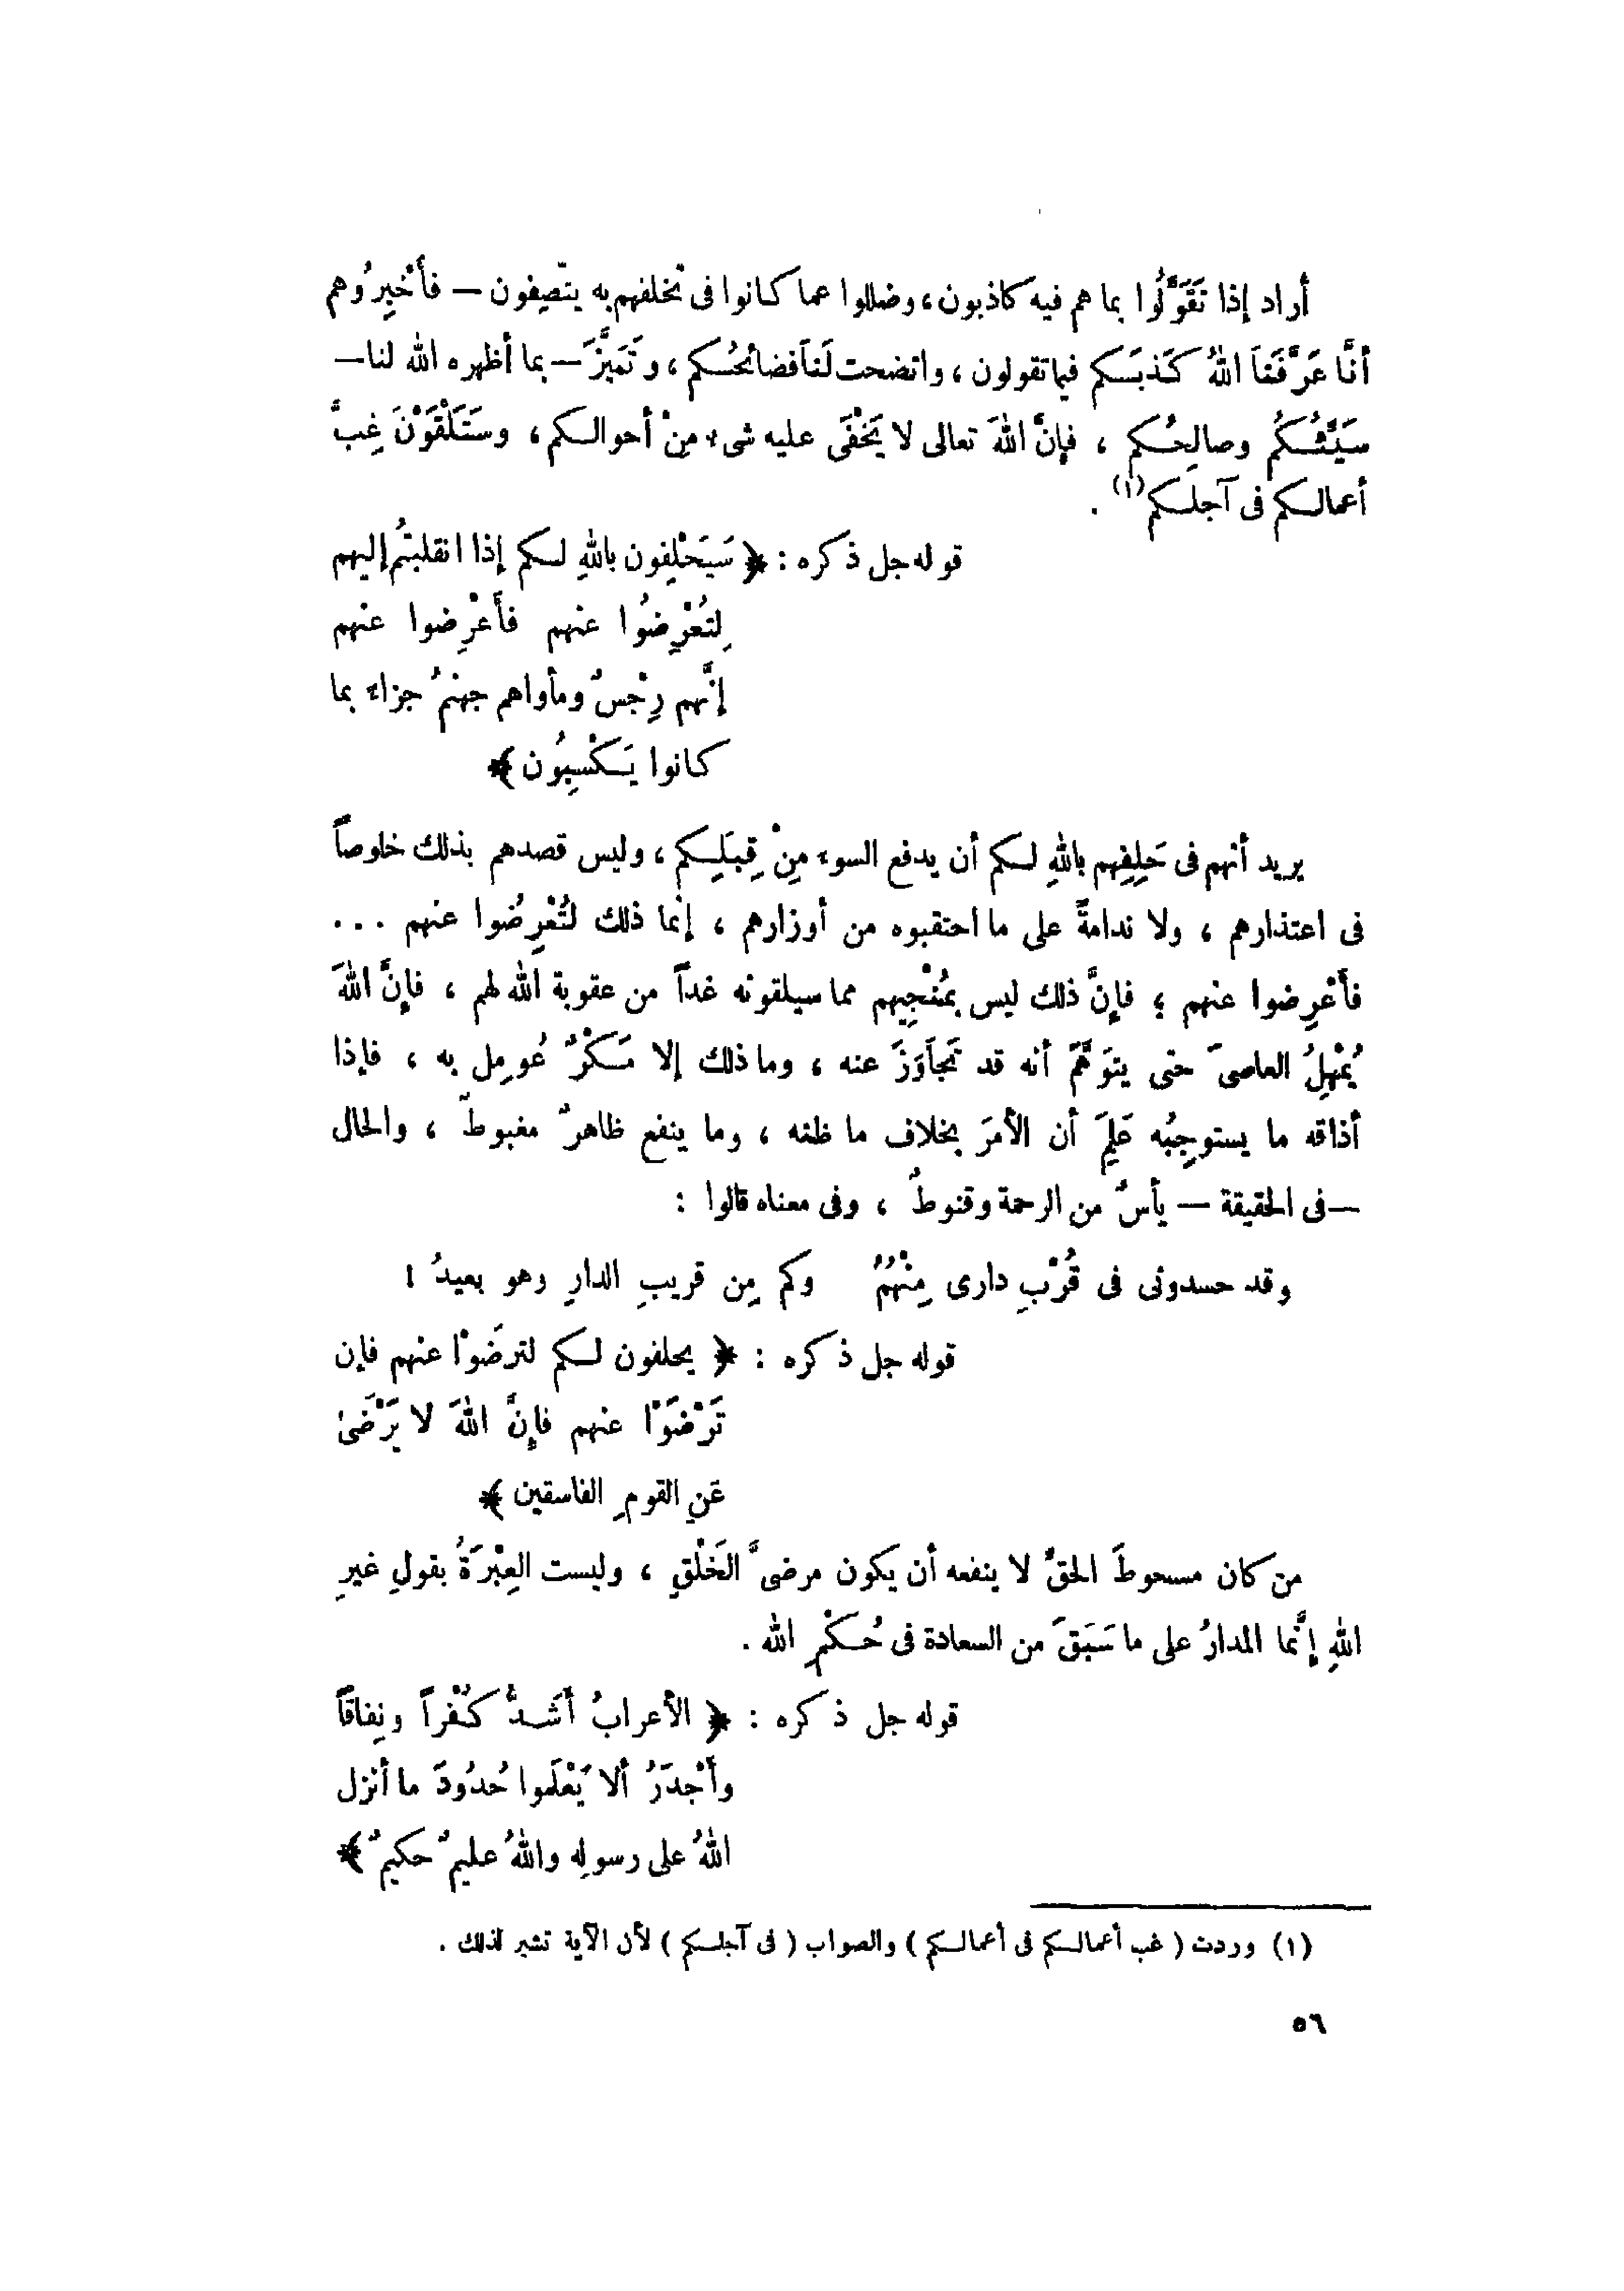 أراد إذا تَقَوَّلُوا بما هم فيه كاذبون، وضللوا عما كانوا فى تخلفهم به يتَّصِفون – فأَخْبِرُوهم
أنَّا عَرَّفَنَا اللهُ كَذبَكم فيما تقولون، واتضحت لَنَا فضائحُكم، وتَمَيَّزَ – بما أظهره الله لنا –
سَيِّئُكُم وصالِحُكم، فإنَّ اللهَ تعالى لا يَخْفَى عليه شىء مِنْ أحوالكم، وسَتَلْقَوْنَ غِبَّ
أعمالكم فى آجلكم(١).
قوله جل ذكره : ﴿ سَيَحْلِفون باللهِ لكم إذا انقلبتُم إليهم
لِتُعْرِضُوا عنهم فأَعْرِضوا عنهم
إنَّهم رِجْسٌ ومأواهم جهنمُ جزاءً بما
كانوا يَكْسِبُون ﴾
يريد أنهم فى حَلِفِهم باللهِ لكم أن يدفع السوء مِنْ قِبَلِكم، وليس قصدهم بذلك خلوصاً
فى اعتذارهم، ولا ندامةً على ما احتقبوه من أوزارهم، إنما ذلك لتُعْرِضُوا عنهم ...
فأَعْرِضوا عنهم ؛ فإنَّ ذلك ليس بمُنْجِيهم مما سيلقونه غداً من عقوبة الله لهم، فإنَّ اللهَ
يُمْهِلُ العاصىَ حتى يتوَهَّمَ أنه قد تَجاَوَزَ عنه، وما ذلك إلا مَكْرٌ عُومِل به، فإذا
أذاقه ما يستوجِبُه عَلِمَ أن الأمرَ بخلاف ما ظنه، وما ينفع ظاهرٌ مغبوطٌ، والحال
– فى الحقيقة – يأسٌ من الرحمة وقنوطٌ، وفى معناه قالوا :
وقد حسدونى فى قُرْبِ دارى مِنْهُمُ    وكم مِن قريبِ الدارِ وهو بعيدُ !
قوله جل ذكره : ﴿ يحلفون لكم لترضَوْا عنهم فإن
تَرْضَوْا عنهم فإنَّ اللهَ لا يَرْضَىٰ
عَنِ القومِ الفاسقين ﴾
من كان مسحوطَ الحقِّ لا ينفعه أن يكون مرضىَّ الخَلْقِ، وليست العِبْرَةُ بقولِ غيرِ
اللهِ إنَّما المدارُ على ما سَبَقَ من السعادة فى حُكْمِ الله.
قوله جل ذكره : ﴿ الأعرابُ أَشَدُّ كُفْراً ونِفاقاً
وأَجْدَرُ ألا يَعْلَموا حُدُودَ ما أنزل
اللهُ على رسولِه واللهُ عليمٌ حكيمٌ ﴾
(١) وردت ( غب أعمالكم فى أعمالكم ) والصواب ( فى آجلكم ) لأن الآية تشير لذلك.
٥٦